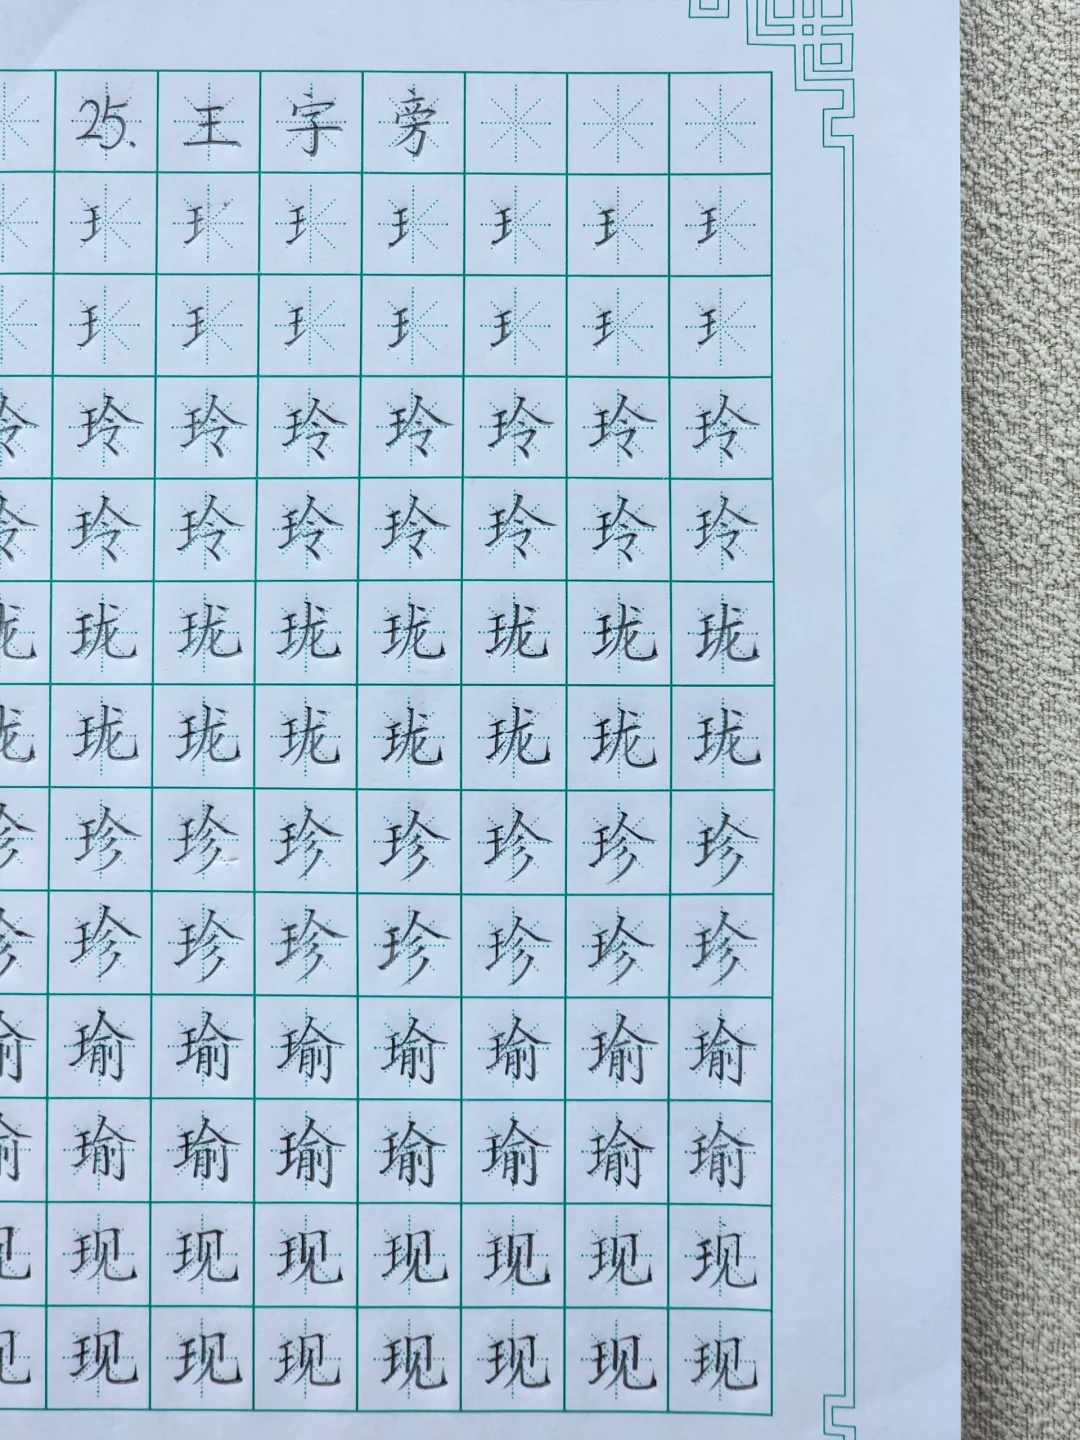 25.王字旁
𤣩𤣩𤣩𤣩𤣩𤣩𤣩
𤣩𤣩𤣩𤣩𤣩𤣩𤣩
玲玲玲玲玲玲玲
玲玲玲玲玲玲玲
珑珑珑珑珑珑珑
珑珑珑珑珑珑珑
珍珍珍珍珍珍珍
珍珍珍珍珍珍珍
瑜瑜瑜瑜瑜瑜瑜
瑜瑜瑜瑜瑜瑜瑜
现现现现现现现
现现现现现现现